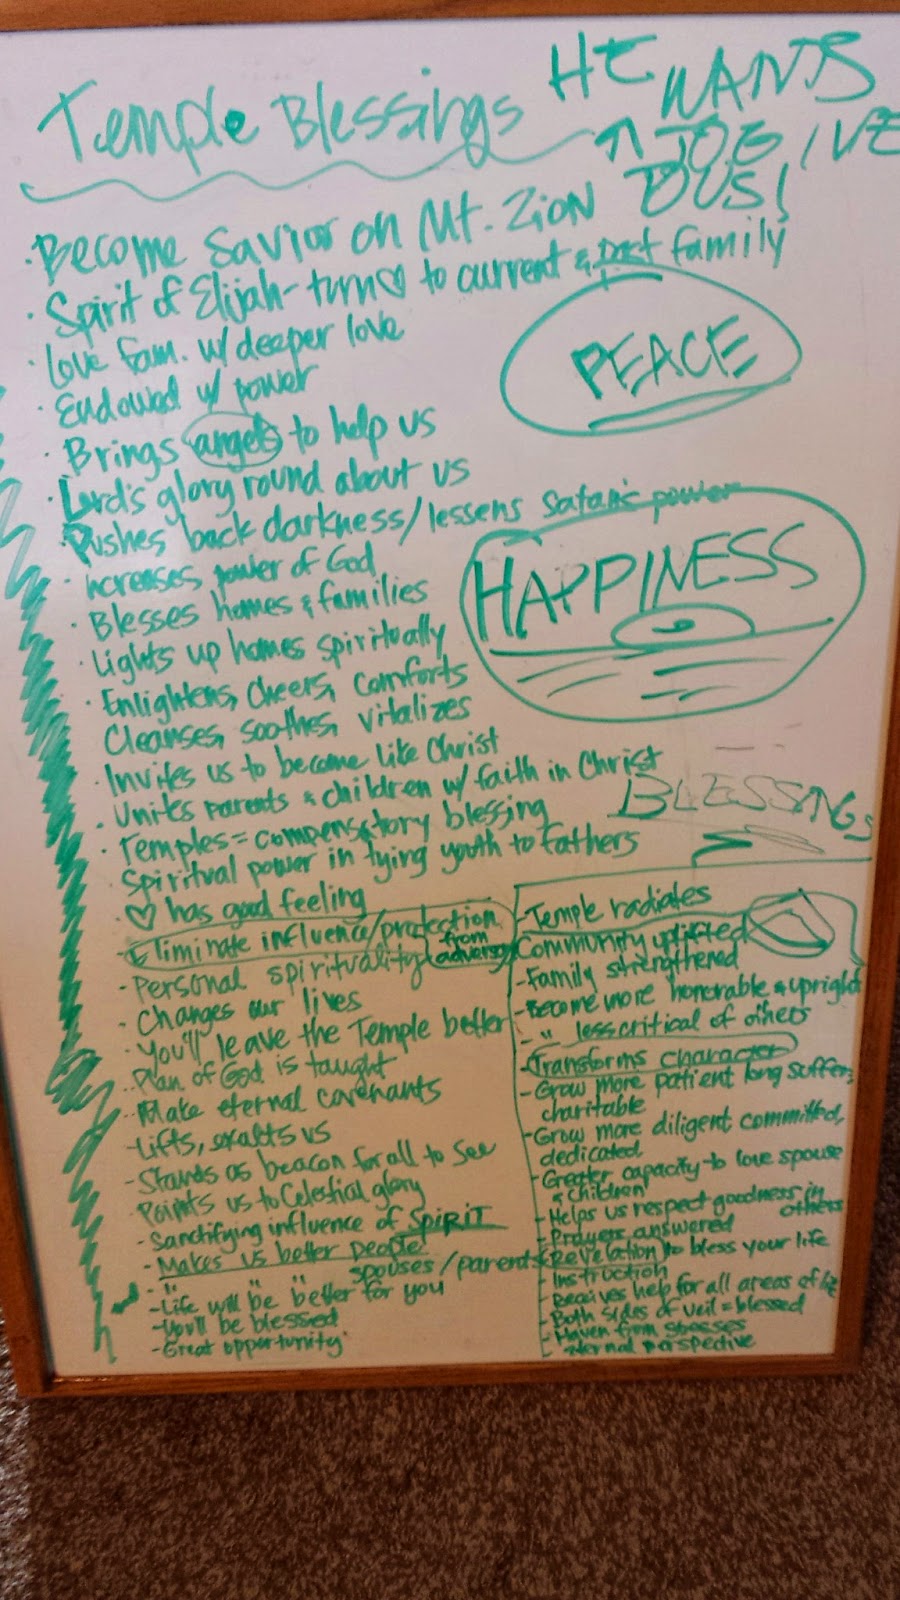 Temple Blessings
HE WANTS
↑ TO GIVE
US!
· Become Savior on Mt. Zion
· Spirit of Elijah - turn ♡ to current & past family
· Love fam. w/ deeper love
· Endowed w/ power
· Brings angels to help us
· Lord's glory round about us
· Pushes back darkness/lessens Satan's power
· increases power of God
· Blesses homes & families
· Lights up homes spiritually
· Enlightens, cheers, comforts
Cleanses, soothes, vitalizes
· Invites us to become like Christ
· Unites parents & children w/ faith in Christ
· Temples = compensatory blessing
Spiritual power in tying youth to fathers
· ♡ has good feeling
- Eliminate influence/protection
from
adversary
- Personal spirituality
· Changes our lives
· You'll leave the Temple better
· Plan of God is taught
· Make eternal covenants
- Lifts, exalts us
- Stands as beacon for all to see
Points us to Celestial glory
- Sanctifying influence of SPIRIT
- Makes us better people
- " " " spouses/parents
- Life will be better for you
- You'll be blessed
- Great opportunity
PEACE
HAPPINESS
BLESSINGS
- Temple radiates
Community uplifted
- Family strengthened
- Become more honorable & upright
- " less critical of others
- Transforms character
- Grow more patient long suffer,
charitable
- Grow more diligent committed,
dedicated
- Greater capacity to love spouse
& children
- Helps us respect goodness in
others
- Prayers answered
- Revelation to bless your life
- Instruction
- Receives help for all areas of life
- Both sides of veil = blessed
- Haven from stresses
- eternal perspective